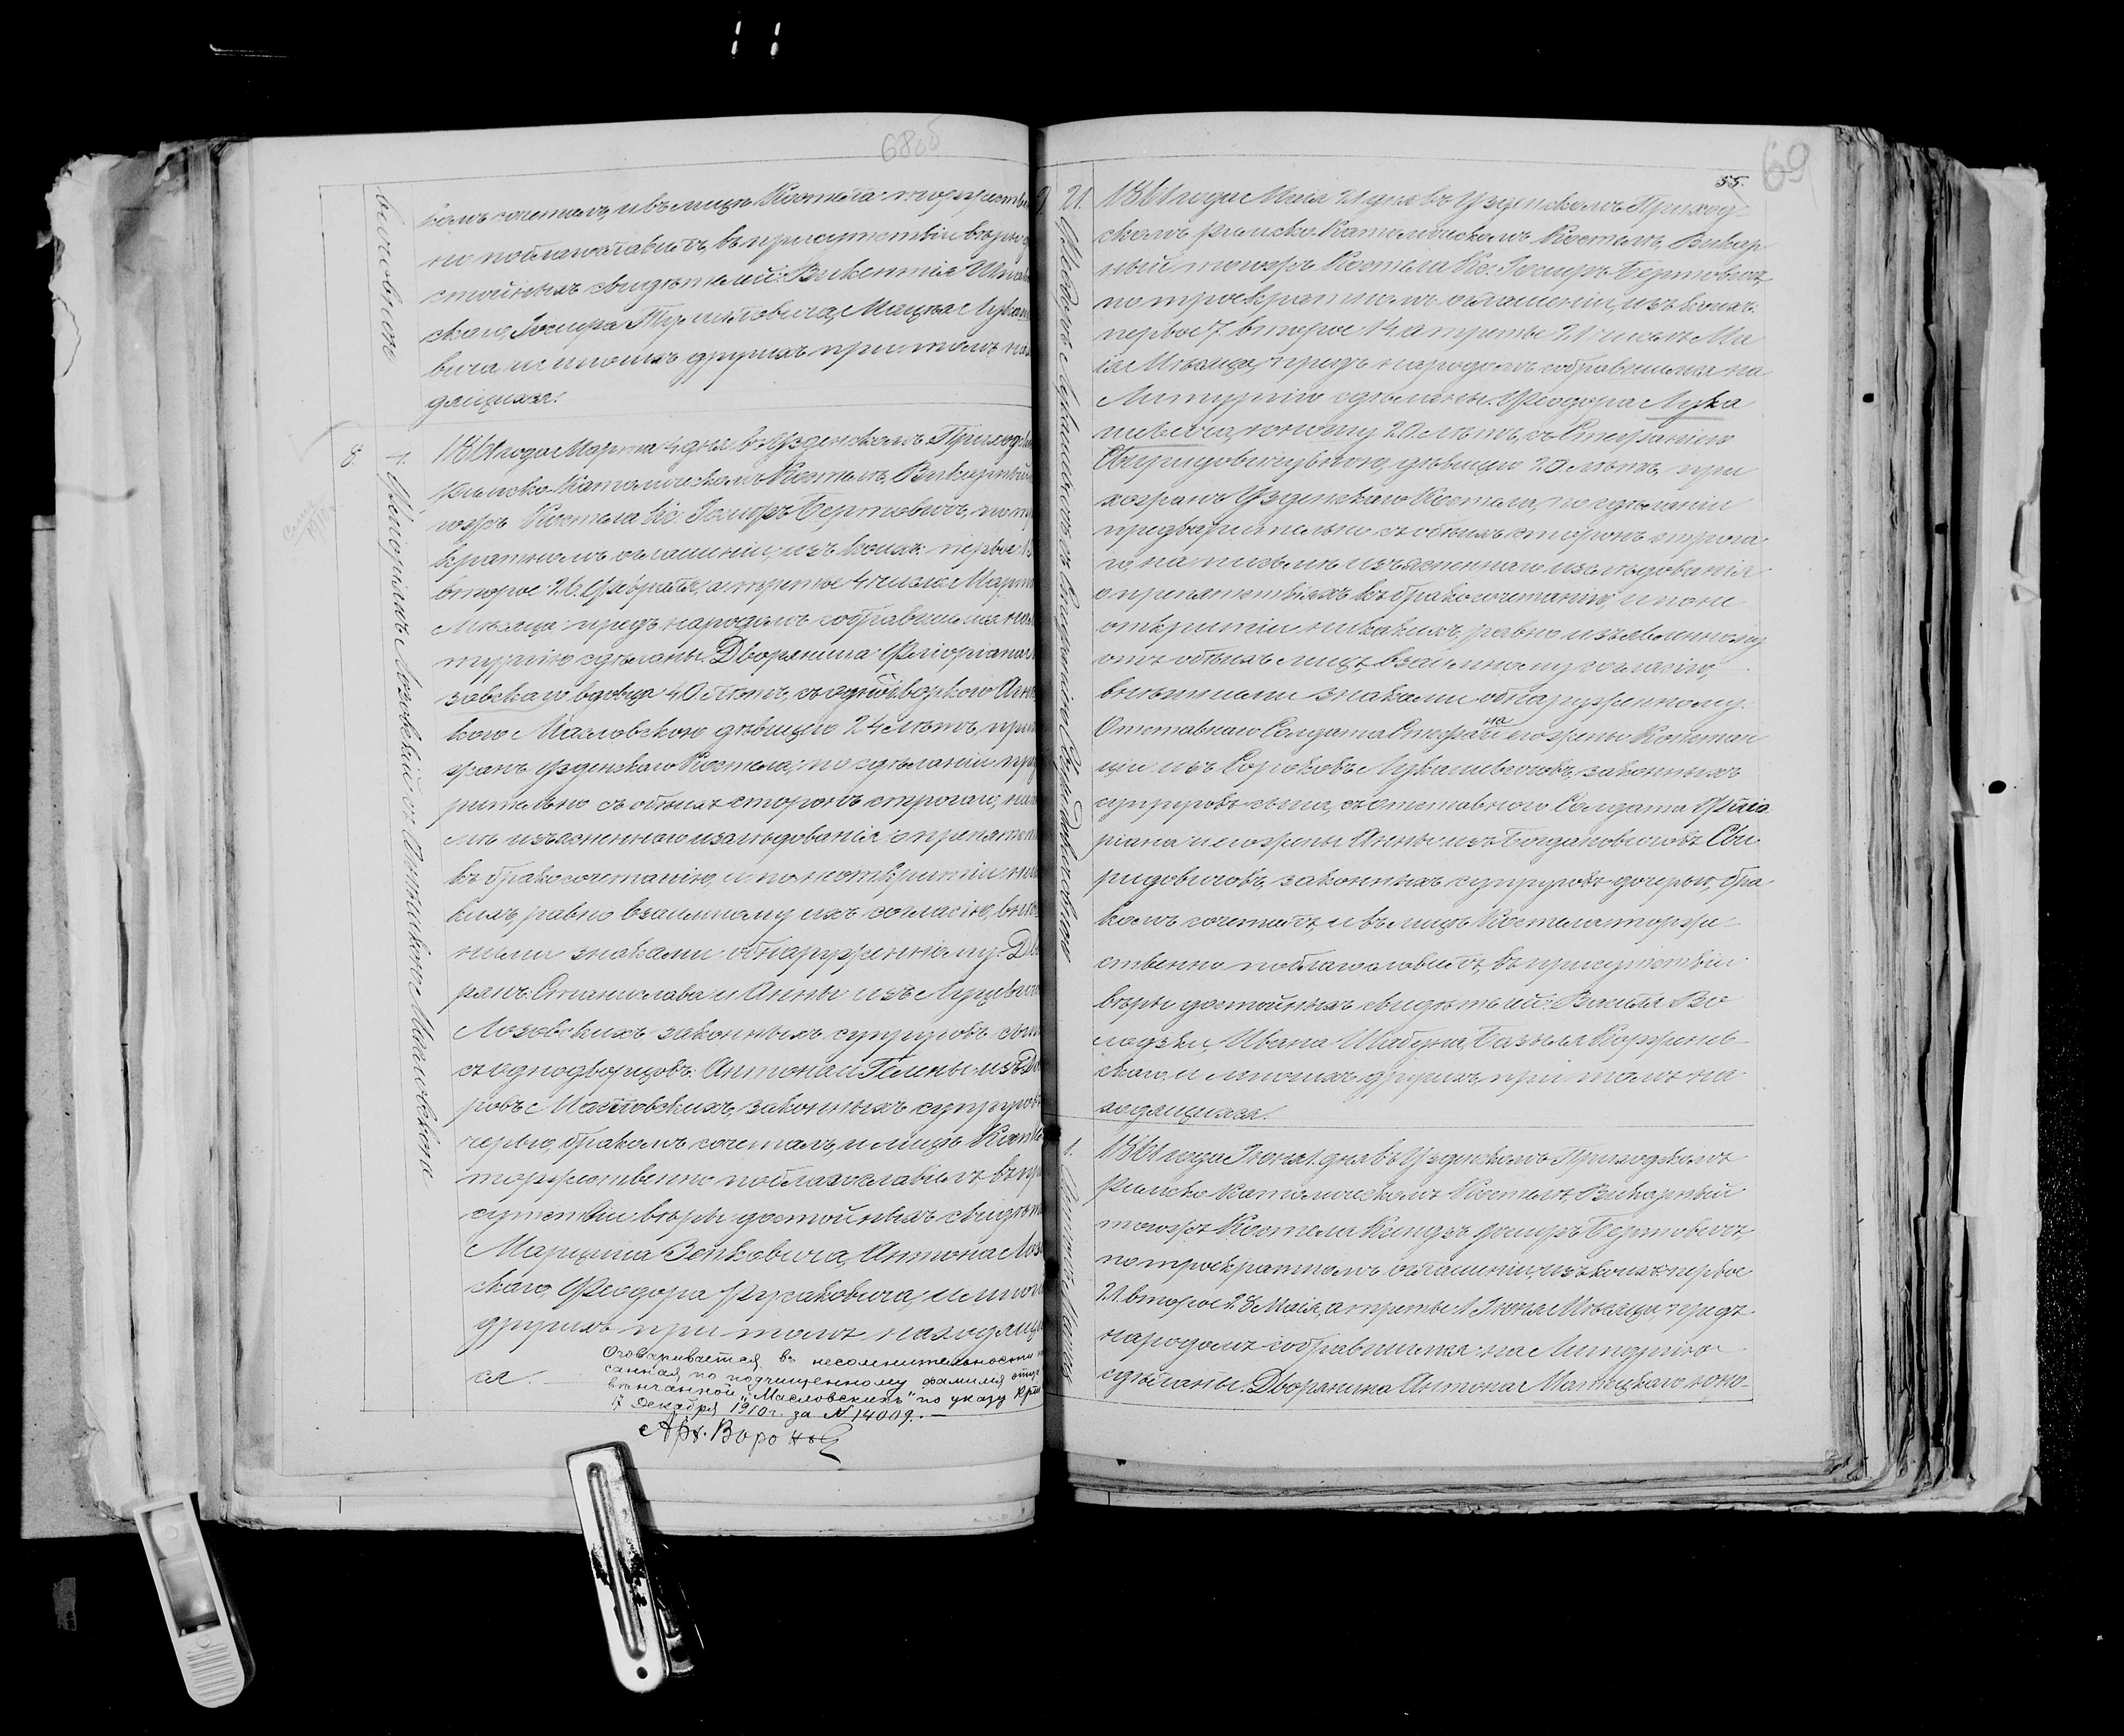 68об
вичовною
комъ сочеталъ и въ лицѣ Костела торжестве
но поблагославилъ, въ присутствіи вѣры до
стойныхъ свидѣтелей: Викентія
скаго, Іосифа Мацѣя Лука
вича, и иныхъ другихъ при томъ на
дящихся.
8.
1. Флюріанъ Лозовскій съ Антиковою Масловскою
1861 года Марта 4 дня, въ Узденскомъ Приход
Римско-Католическомъ Костелѣ, Викарный
тогожъ Костела Кс: Іосифъ Бертовичъ, по
кратномъ оглашеніи, изъ коихъ: первое
второе 26. Февраля, а третье 4 числъ Марта
Мѣсяца: предъ народомъ собравшимся на
тургію сдѣланы. Дворянина Флюріана
зовскаго вдовца 40 лѣтъ, съ однодворкою
кою Масловскою дѣвицею 24 лѣтъ, при
жанъ Узденскаго Костела; по сдѣланіи
рительно съ обѣихъ сторонъ строгаго, на
мѣ изъясненнаго изслѣдованія о препят
къ бракосочетанію, и по неоткрытіи ни
кихъ, равно взаимному ихъ согласію, внѣ
ными знаками обнаруженному: Дво
рянъ Станислава и Анны изъ
Лозовскихъ законныхъ супруговъ сына
съ однодворцовъ: Антона и Гелены изъ
ровъ Масловскихъ, законныхъ супруговъ
черью, бракомъ сочеталъ, и лицѣ Кост
торжественно поблагославилъ, въ при
сутствіи вѣры достойныхъ свидѣте
Марцина Зенковича, Антона Лоз
скаго, Феодора Русаковича, и иныхъ
другихъ при томъ находящи
ся.
Оговаривается, въ несомнительности
санная по подчищенному фамилія
вѣнчанной „Масловскихъ“ по указу
17 Декабря 1910 г. за № 14009.—
Арх. Вороне
69
55.
21.
Феодоръ Лукашевичъ съ Стефаніею Свиридовичовною
1861 года Маія 21 дня въ Узденскомъ Приход-
скомъ Римско-Католическомъ Костелѣ, Викар
ный тогожъ Костела Кс. Іосифъ Бертовичъ,
по троекратномъ оглашеніи, изъ коихъ:
первое 7. второе 14. а третье 21 числъ Ма
ія Мѣсяца, предъ народомъ собравшимся на
Литургію сдѣланы. Феодора Лука
шевича, юношу 20. лѣтъ, съ Стефаніею
Свиридовичувною, дѣвицею 20 лѣтъ, при
хожанъ Узденскаго Костела, по сдѣланіи
предварительно съ обѣихъ сторонъ строга
го, на письмѣ изъясненнаго изслѣдованія
о препятствіяхъ къ бракосочетанію, и по не
открытіи никакихъ, равно изъявленному
отъ обѣихъ лицъ взаимному согласію,
внѣшними знаками обнаруженному.
Отставнаго Солдата Стефана и его жены Констан
ціи изъ Сороковъ Лукашевичовъ, законныхъ
супруговъ сына, съ отставного Солдата Флю
ріана и его жены Анны изъ Богдановичовъ Сви
ридовичовъ, законныхъ супруговъ дочерью, бра
комъ сочеталъ, и въ лицѣ Костела торже-
ственно поблагословилъ, въ присутствіи
вѣры достойныхъ свидѣтелей: Василя Во
лодзки, Ивана Шабуна, Базыля Корженев
скаго, и иныхъ другихъ, при томъ на
ходящихся.
1.
1861 года Іюня 1. дня въ Узденскомъ Приходскомъ
Римско-Католическомъ Костелѣ, Викарный
тогожъ Костела Ксіндзъ Іосифъ Бертовичъ,
по троекратномъ оглашеніи, изъ коихъ первое
21. второе 28 Маія, а третье 1 Іюня Мѣсяца, предъ
народомъ собравшимся на Литургію
сдѣланы. Дворянина Антона юно-